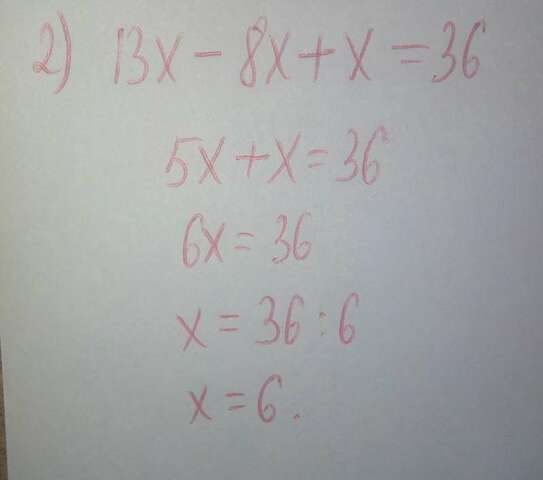 2) 13x - 8x + x = 36
5x + x = 36
6x = 36
x = 36 : 6
x = 6.